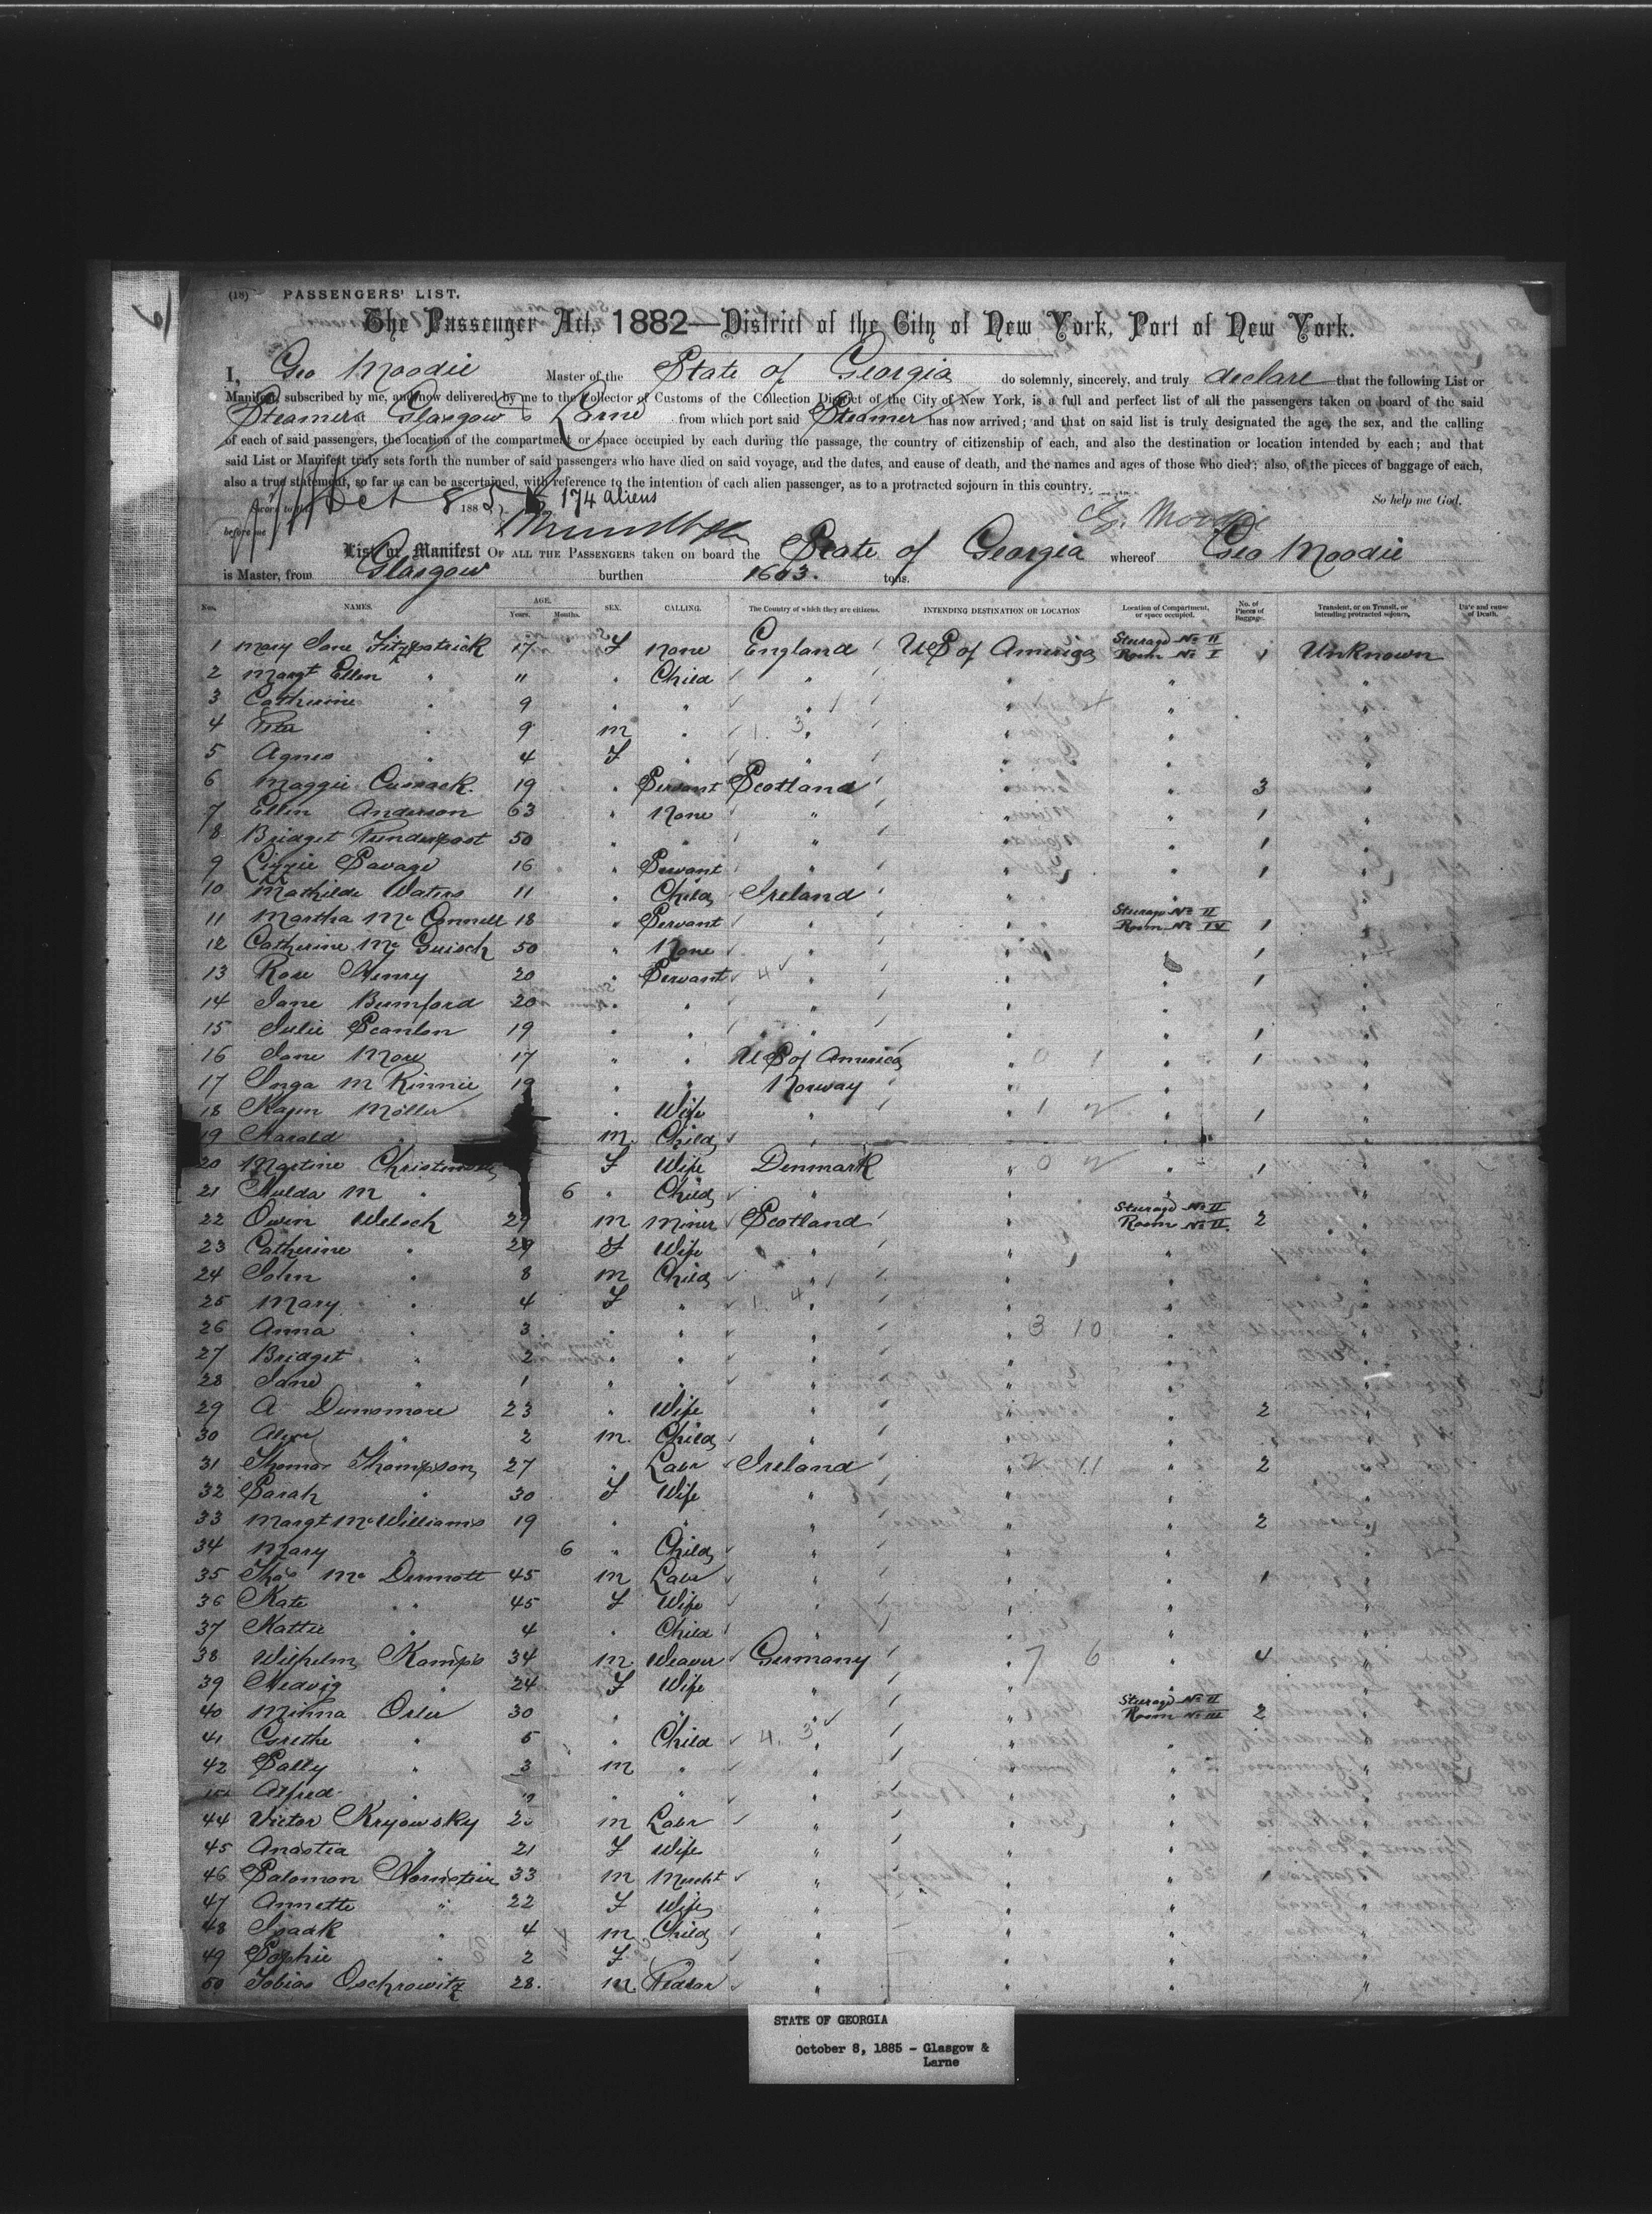 (18) PASSENGERS' LIST.
The Passenger Act, 1882—District of the City of New York, Port of New York.
I, Geo Moodie Master of the State of Georgia do solemnly, sincerely, and truly declare that the following List or
Manifest, subscribed by me, and now delivered by me to the Collector of Customs of the Collection District of the City of New York, is a full and perfect list of all the passengers taken on board of the said
Steamers Glasgow & Larne from which port said Steamer has now arrived; and that on said list is truly designated the age, the sex, and the calling
of each of said passengers, the location of the compartment or space occupied by each during the passage, the country of citizenship of each, and also the destination or location intended by each; and that
said List or Manifest truly sets forth the number of said passengers who have died on said voyage, and the dates, and cause of death, and the names and ages of those who died; also, of the pieces of baggage of each,
also a true statement, so far as can be ascertained, with reference to the intention of each alien passenger, as to a protracted sojourn in this country. So help me God.
Sworn to this Oct 8 1885 174 aliens
before me G. Moodie
List or Manifest OF ALL THE PASSENGERS taken on board the State of Georgia whereof Geo Moodie
is Master, from Glasgow burthen 1603. tons.
Nos. NAMES. AGE. Years. Months. SEX. CALLING. The Country of which they are citizens. INTENDING DESTINATION OR LOCATION Location of Compartment, or space occupied. No. of Pieces of Baggage. Transient, or on Transit, or intending protracted sojourn. Date and cause of Death.
1 Mary Jane Fitzpatrick 17 F None England US of America Sturage No II Room No I 1 Unknown
2 Margt Ellen " 11 " Child " " " "
3 Catherine " 9 " " " " " "
4 Peter " 9 M " " " " "
5 Agnes " 4 F " " " " "
6 Maggie Cusack 19 " Servant Scotland " " 3 "
7 Ellen Anderson 63 " None " " " 1 "
8 Bridget 50 " " " " " 1 "
9 Lizzie Savage 16 " Servant " " " 1 "
10 Mathilde Waters 11 " Child Ireland " " "
11 Martha McConnell 18 " Servant " " Sturage No II Room No IV 1 "
12 Catherine Mc 50 " None " " " 1 "
13 Rose Henry 20 " Servant " " " 1 "
14 Jane Bumford 20 " " " " " "
15 Julie Scanlon 19 " " " " " 1 "
16 Jane 17 " " US of America " " 1 "
17 Inga M Rinnie 19 " " Norway " " "
18 Karen Möller " Wife " " " 1 "
19 Harald " M. Child " " " "
20 Martine F Wife Denmark " " 1 "
21 Hulda M " 6 " Child " " " "
22 Owen Welsch 29 M Miner Scotland " Sturage No II Room No II 2 "
23 Catherine " 29 F Wife " " " "
24 John " 8 M Child " " " "
25 Mary " 4 F " " " " "
26 Anna " 3 " " " " " "
27 Bridget " 2 " " " " " "
28 Jane " 1 " " " " " "
29 A Dunsmore 23 " Wife " " " 2 "
30 Alex " 2 M. Child " " " "
31 Thomas Thompson 27 " Labr Ireland " " 2 "
32 Sarah " 30 F Wife " " " "
33 Margt McWilliams 19 " " " " " 2 "
34 Mary " 6 " Child " " " "
35 Thos McDermott 45 M Labr " " " 1 "
36 Kate " 45 F Wife " " " "
37 Kattie " 4 " Child " " " "
38 Wilhelm Kamps 34 M Weaver Germany " " 4 "
39 Hedvig " 24 F Wife " " " "
40 Minna Orler 30 " " " " Sturage No II Room No III 2 "
41 Grethe " 5 " Child " " " "
42 Sally " 3 M " " " " "
Alfred " " " " " " "
44 Victor Kryowsky M Labr " " " "
45 Anastia " 21 F Wife " " " "
46 Salomon Hornstein 33 M Mercht " " " 1 "
47 Annette " 22 F Wife " " " "
48 Isaak " 4 M Child " " " "
49 Sophie " 2 F " " " " "
50 Tobias Oschrowitz 28. M " " " "
STATE OF GEORGIA
October 8, 1885 - Glasgow &
Larne